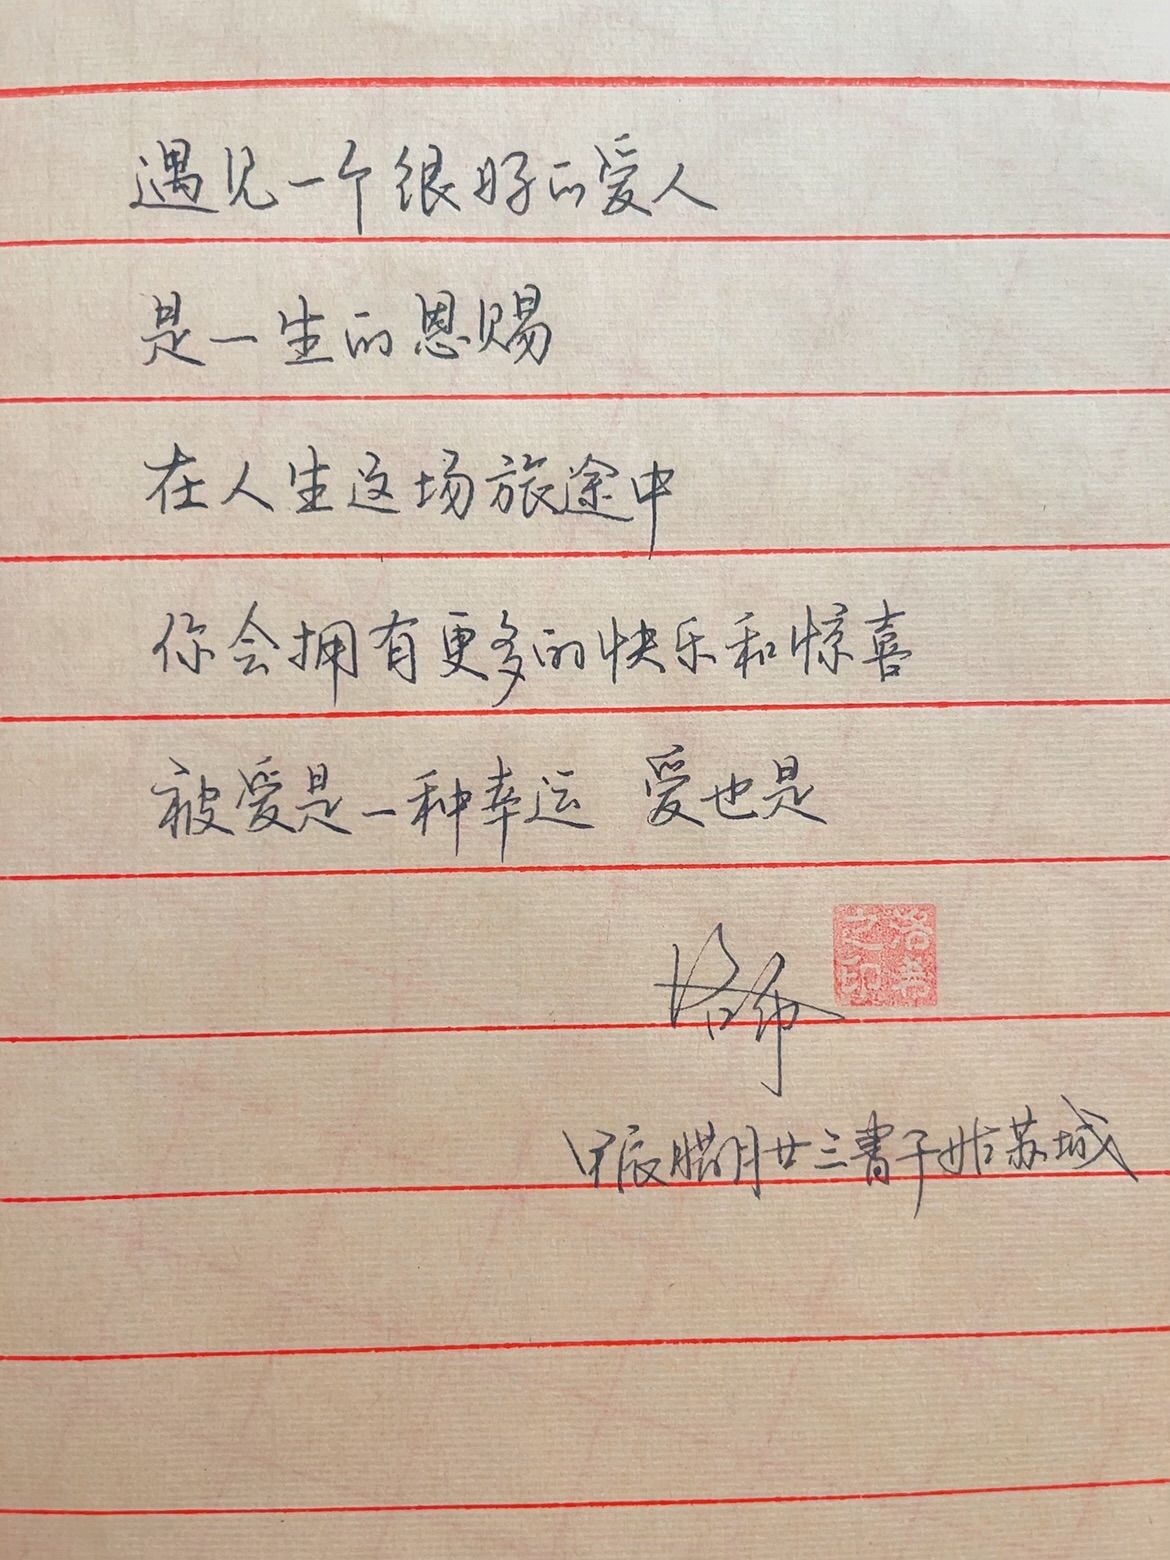 遇见一个很好的爱人
是一生的恩赐
在人生这场旅途中
你会拥有更多的快乐和惊喜
被爱是一种幸运 爱也是
洛书之印
甲辰腊月廿三書于姑苏城